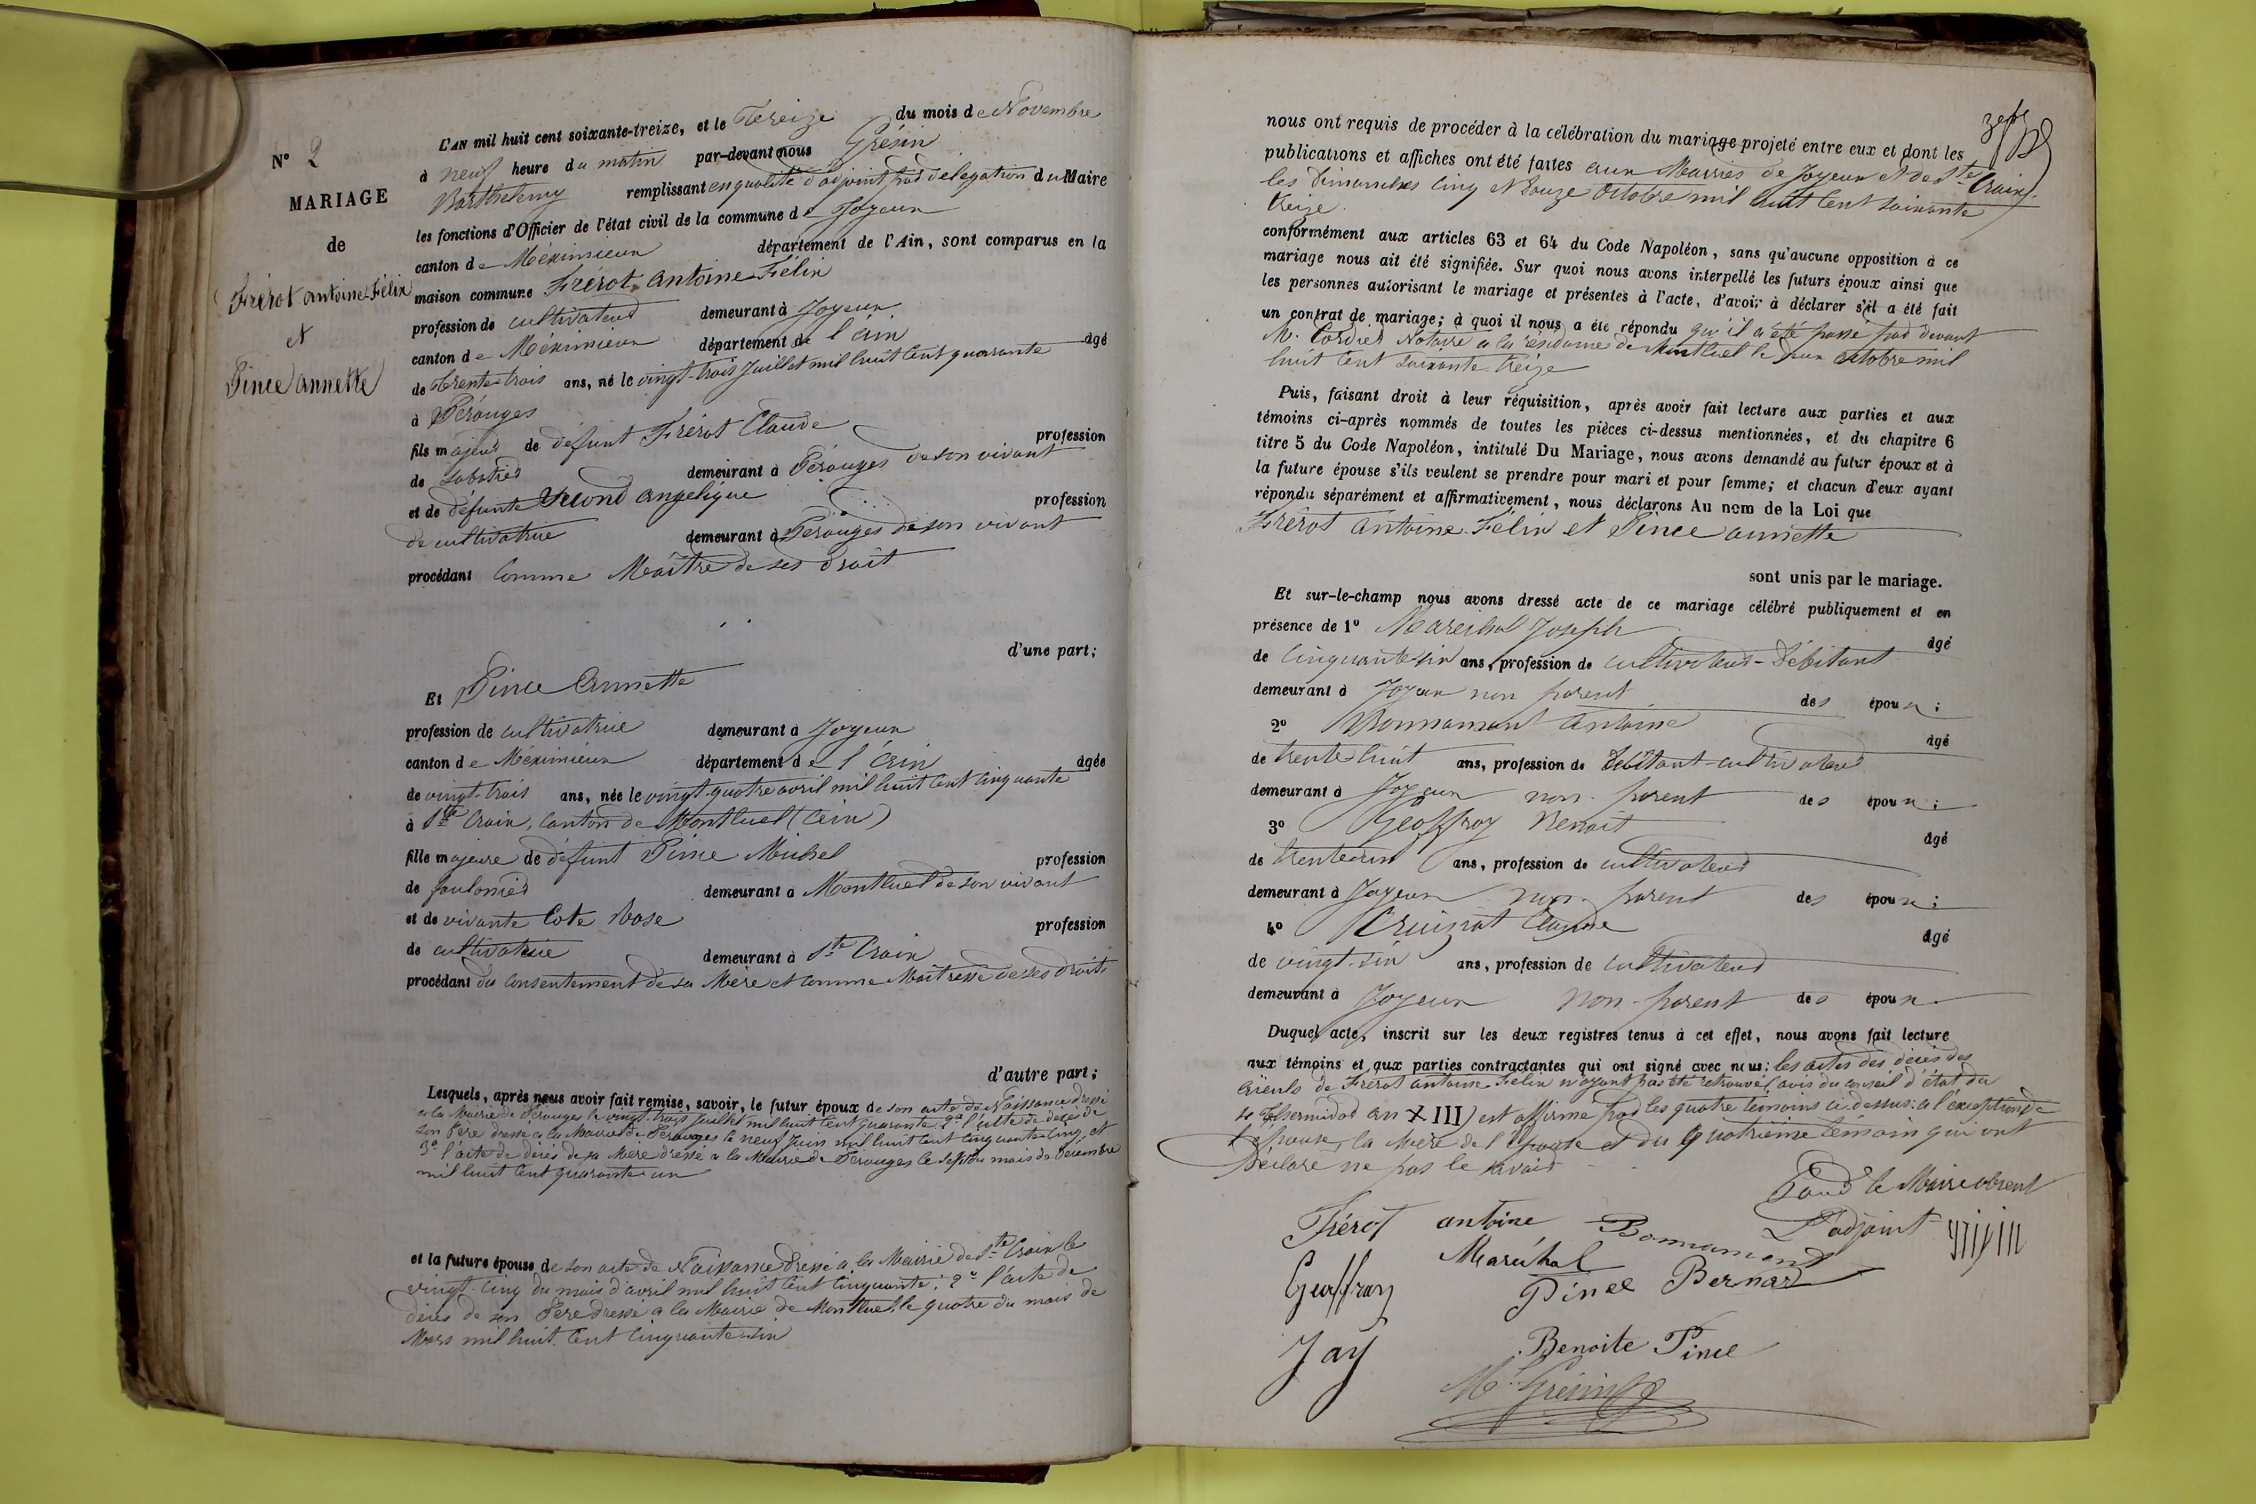 N° 2
MARIAGE
de
Frérot Antoine Félix
et
Pince Annette
L'AN mil huit cent soixante-treize, et le Treize du mois de Novembre
à neuf heure du matin par-devant nous Grésin
Barthelemy remplissant en qualité d'adjoint par délégation du Maire
les fonctions d'Officier de l'état civil de la commune de Joyeux
canton de Méximieux département de l'Ain, sont comparus en la
maison commune Frérot Antoine Félix
profession de cultivateur demeurant à Joyeux
canton de Méximieux département de l'Ain âgé
de trente-trois ans, né le vingt-trois Juillet mil huit cent quarante
à Pérouges
fils majeur de défunt Frérot Claude profession
de sabotier demeurant à Pérouges de son vivant
et de défunte Second Angelique profession
de cultivatrice demeurant à Pérouges de son vivant
procédant comme Maître de ses droit
d'une part;
Et Pince Annette
profession de cultivatrice demeurant à Joyeux
canton de Méximieux département de l'Ain âgée
de vingt-trois ans, née le vingt-quatre avril mil huit cent cinquante
à Ste Croix, canton de Montluel (Ain)
fille majeure de défunt Pince Michel profession
de foulonier demeurant à Montluel de son vivant
et de vivante Cote Rose profession
de cultivatrice demeurant à Ste Croix
procédant du consentement de sa Mère et comme Maîtresse de ses droits
d'autre part;
Lesquels, après nous avoir fait remise, savoir, le futur époux de son acte de Naissance dressé
a la Mairie de Pérouges le vingt-trois Juillet mil huit cent quarante; 2° l'acte de décès de
son Père dressé a la Mairie de Pérouges le neuf Juin mil huit cent cinquante-cinq et
3° l'acte de décès de sa Mère dressé a la Mairie de Pérouges le sept du mois de Décembre
mil huit cent quarante-un
et la future épouse de son acte de Naissance dressé a la Mairie de Ste Croix le
vingt-cinq du mois d'avril mil huit cent cinquante; 2° l'acte de
décès de son Père dressé a la Mairie de Montluel le quatre du mois de
Mars mil huit cent cinquante-six
nous ont requis de procéder à la célébration du mariage projeté entre eux et dont les
publications et affiches ont été faites aux Mairies de Joyeux et de Ste Croix,
les Dimanches Cinq et Douze Octobre mil huit cent soixante
treize.
conformément aux articles 63 et 64 du Code Napoléon, sans qu'aucune opposition à ce
mariage nous ait été signifiée. Sur quoi nous avons interpellé les futurs époux ainsi que
les personnes autorisant le mariage et présentes à l'acte, d'avoir à déclarer s'il a été fait
un contrat de mariage; à quoi il nous a été répondu qu'il a été passé par devant
M. Cordier Notaire a la résidence de Montluel le deux octobre mil
huit cent soixante-treize
Puis, faisant droit à leur réquisition, après avoir fait lecture aux parties et aux
témoins ci-après nommés de toutes les pièces ci-dessus mentionnées, et du chapitre 6
titre 5 du Code Napoléon, intitulé Du Mariage, nous avons demandé au futur époux et à
la future épouse s'ils veulent se prendre pour mari et pour femme; et chacun d'eux ayant
répondu séparément et affirmativement, nous déclarons Au nom de la Loi que
Frérot Antoine Félix et Pince Annette
sont unis par le mariage.
Et sur-le-champ nous avons dressé acte de ce mariage célébré publiquement et en
présence de 1° Maréchal Joseph âgé
de cinquante-six ans, profession de cultivateur-Débitant
demeurant à Joyeux non parent des époux;
2° Bonnamour Antoine âgé
de trente-huit ans, profession de débitant-cultivateur
demeurant à Joyeux non parent des époux;
3° Geoffray Benoit âgé
de trente-un ans, profession de cultivateur
demeurant à Joyeux non parent des époux;
4° Cruizat Claude âgé
de vingt-six ans, profession de cultivateur
demeurant à Joyeux non-parent des époux.
Duquel acte, inscrit sur les deux registres tenus à cet effet, nous avons fait lecture
aux témoins et aux parties contractantes qui ont signé avec nous; les actes des décès des
aïeuls de Frérot Antoine Félix n'ayant pas été retrouvé (avis du conseil d'état du
4 Thermidor an XIII) est affirmé par les quatre témoins ci-dessus: a l'exception de
l'épouse, la Mère de l'épouse et du quatrième témoin qui ont
déclaré ne pas le savoir
Pour le Maire absent
L'adjoint
Frérot antoine
Bonnamour
Maréchal
Geoffray
Pince Bernard
Jay
Benoite Pince
Grésin